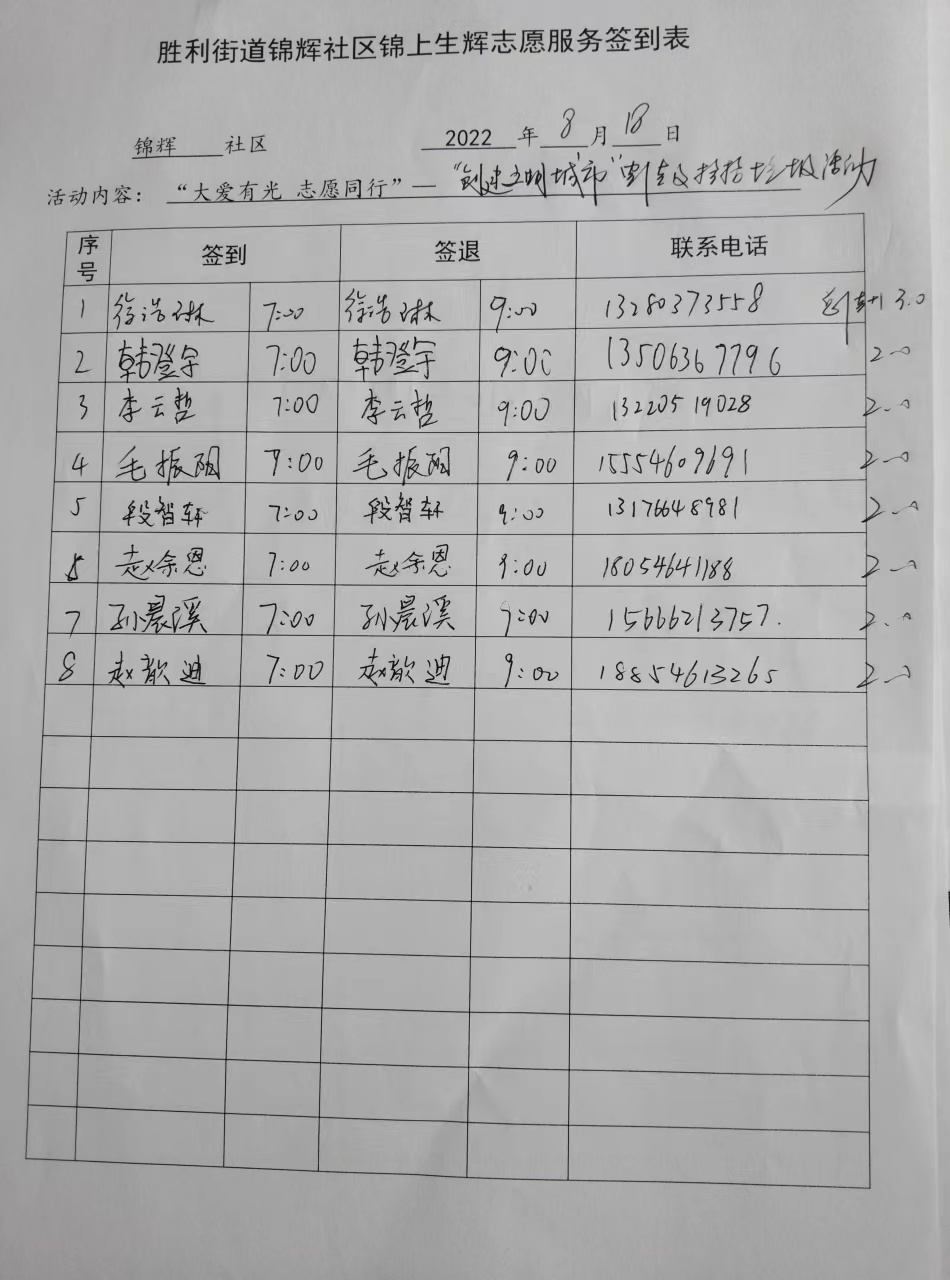 胜利街道锦辉社区锦上生辉志愿服务签到表
锦辉 社区 2022 年 8 月 18 日
活动内容： “大爱有光 志愿同行”— “创建文明城市” 捡拾垃圾活动
序号 签到 签退 联系电话
1 徐浩琳 7:00 徐浩琳 9:00 13280373558 3.0
2 韩澄宇 7:00 韩澄宇 9:00 13506367796 2.0
3 李云哲 7:00 李云哲 9:00 13220519028 2.0
4 毛振 7:00 毛振 9:00 15554609691 2.0
5 段智轩 7:00 段智轩 9:00 13176648981 2.0
赵余恩 7:00 赵余恩 9:00 18054641188 2.0
7 孙晨溪 7:00 孙晨溪 9:00 15666213757. 2.0
8 赵歆迪 7:00 赵歆迪 9:00 18854613265 2.0